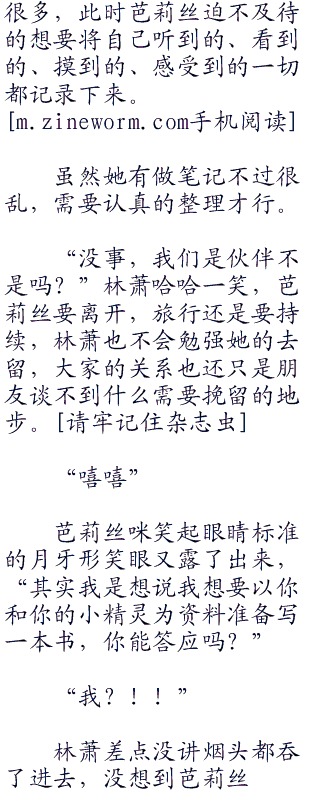 很多，此时芭莉丝迫不及待
的想要将自己听到的、看到
的、摸到的、感受到的一切
都记录下来。
[m.zineworm.com手机阅读]
虽然她有做笔记不过很
乱，需要认真的整理才行。
“没事，我们是伙伴不
是吗？”林萧哈哈一笑，芭
莉丝要离开，旅行还是要持
续，林萧也不会勉强她的去
留，大家的关系也还只是朋
友谈不到什么需要挽留的地
步。[请牢记住杂志虫]
“嘻嘻”
芭莉丝咪笑起眼睛标准
的月牙形笑眼又露了出来，
“其实我是想说我想要以你
和你的小精灵为资料准备写
一本书，你能答应吗？”
“我？！！”
林萧差点没讲烟头都吞
了进去，没想到芭莉丝